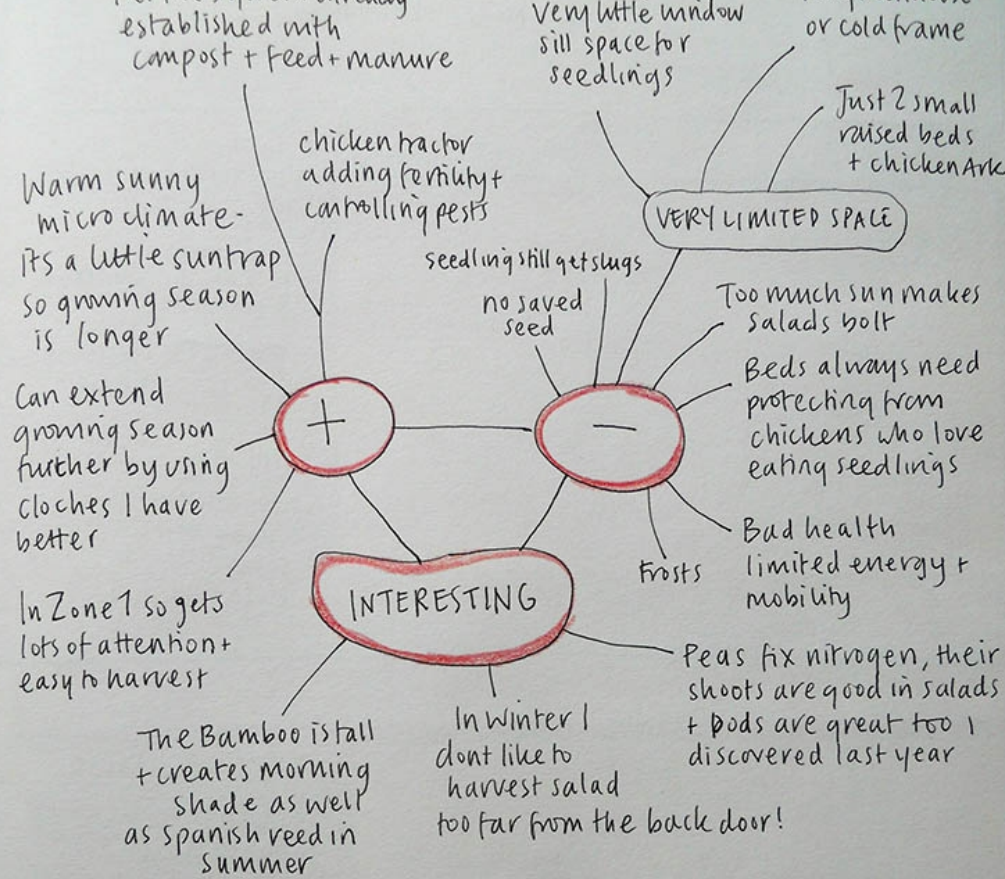 established with
compost + feed + manure
Very little window
sill space for
seedlings
or cold frame
Just 2 small
raised beds
+ chicken Ark
chicken tractor
adding fertility +
controlling pests
Warm sunny
microclimate-
its a little suntrap
so growing season
is longer
VERY LIMITED SPACE
seedling still get slugs
no saved
seed
Too much sun makes
salads bolt
Beds always need
protecting from
chickens who love
eating seedlings
Can extend
growing season
further by using
cloches I have
better
+
−
Bad health
limited energy +
mobility
Frosts
In Zone 1 so gets
lots of attention +
easy to harvest
INTERESTING
Peas fix nitrogen, their
shoots are good in salads
+ pods are great too I
discovered last year
The Bamboo is tall
+ creates morning
shade as well
as spanish reed in
summer
In Winter I
dont like to
harvest salad
too far from the back door!